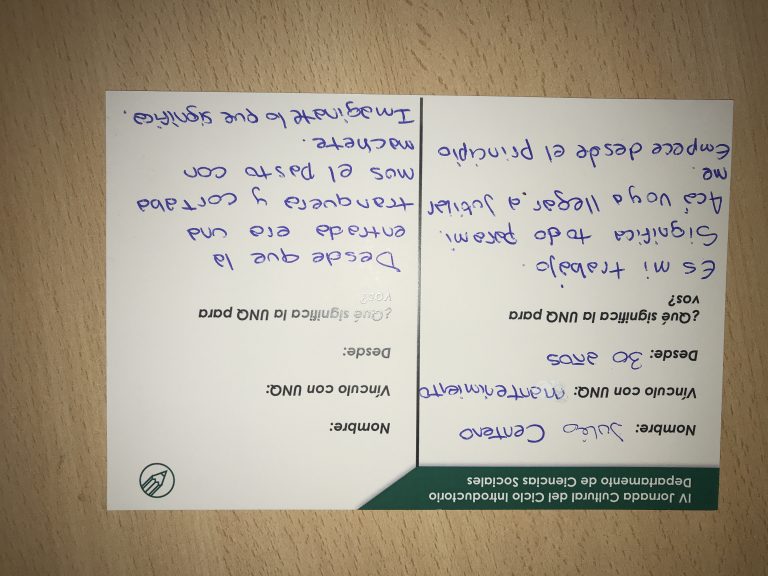 IV Jornada Cultural del Ciclo Introductorio
Departamento de Ciencias Sociales
Nombre: Julio Centeno
Vínculo con UNQ: mantenimiento
Desde: 30 años
¿Qué significa la UNQ para
vos?
Es mi trabajo.
Significa todo para mi.
Acá voy a llegar a jubilar
me.
Empece desde el principio
Nombre:
Vínculo con UNQ:
Desde:
¿Qué significa la UNQ para
vos?
Desde que la
entrada era una
tranquera y cortaba
mos el pasto con
machete.
Imaginate lo que significa.